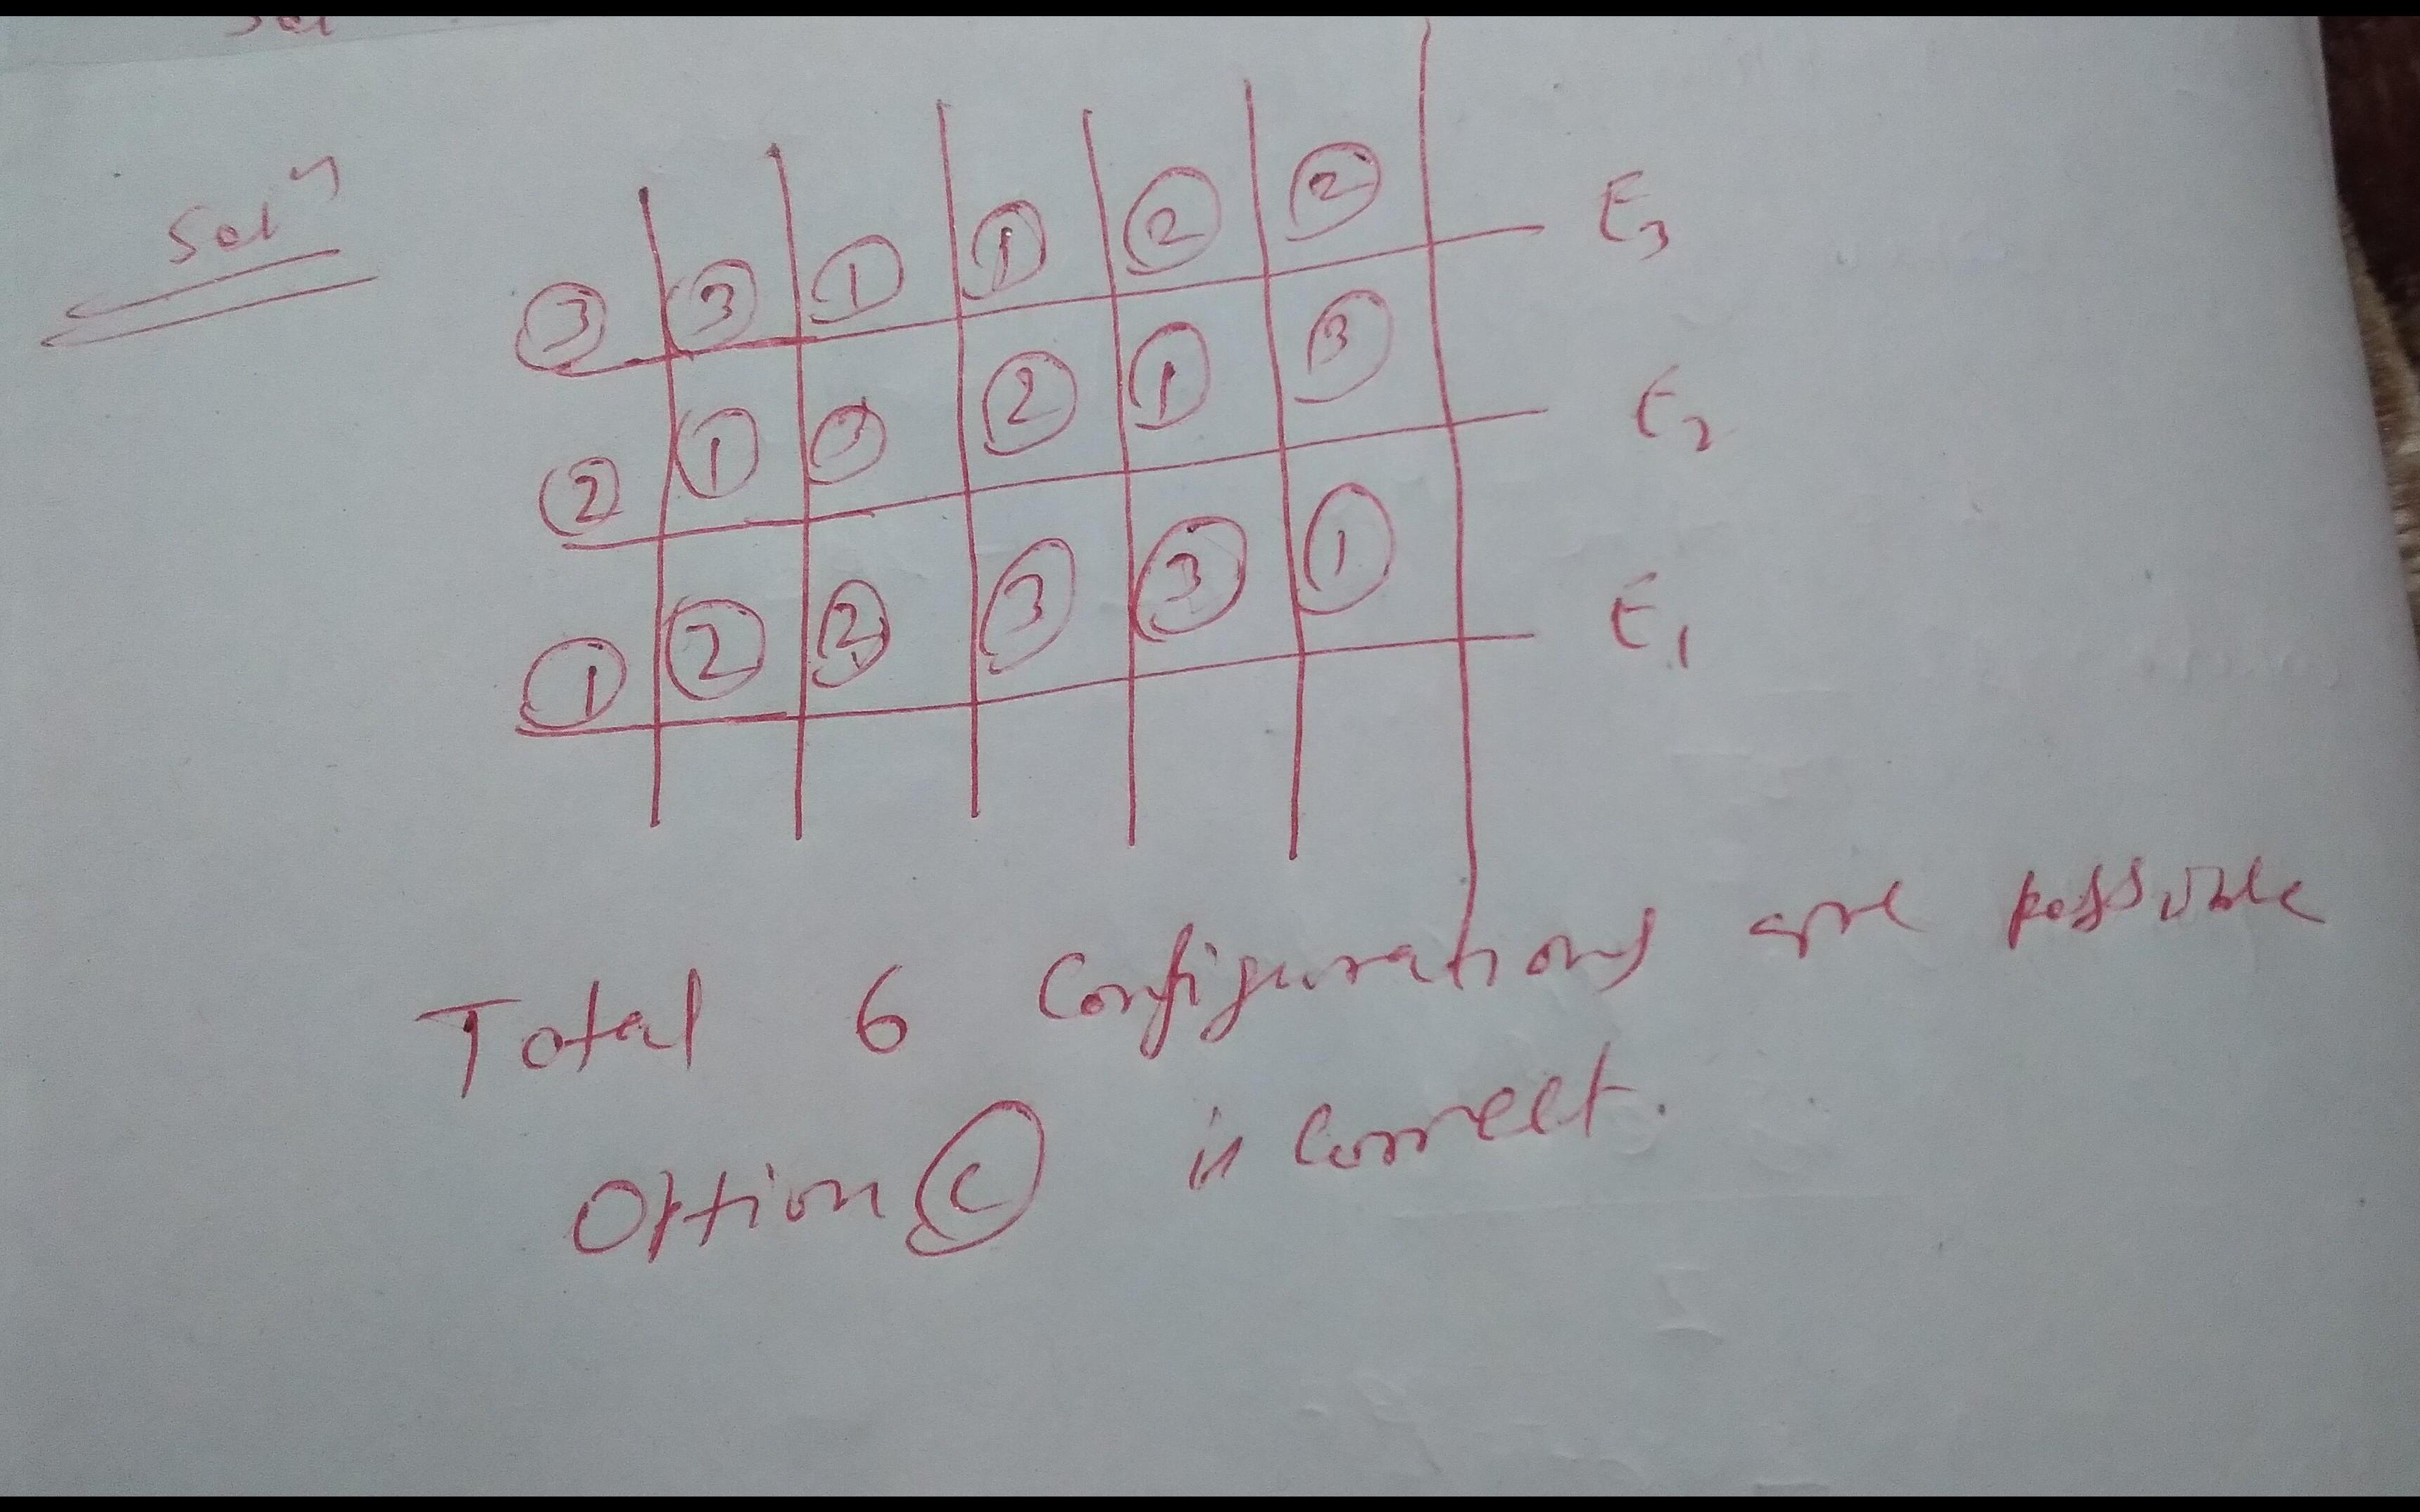 Solⁿ
3 3 1 1 2 2 E₃
2 1 3 2 1 3 E₂
1 2 2 3 3 1 E₁
Total 6 Configurations are possible
Option C is correct.